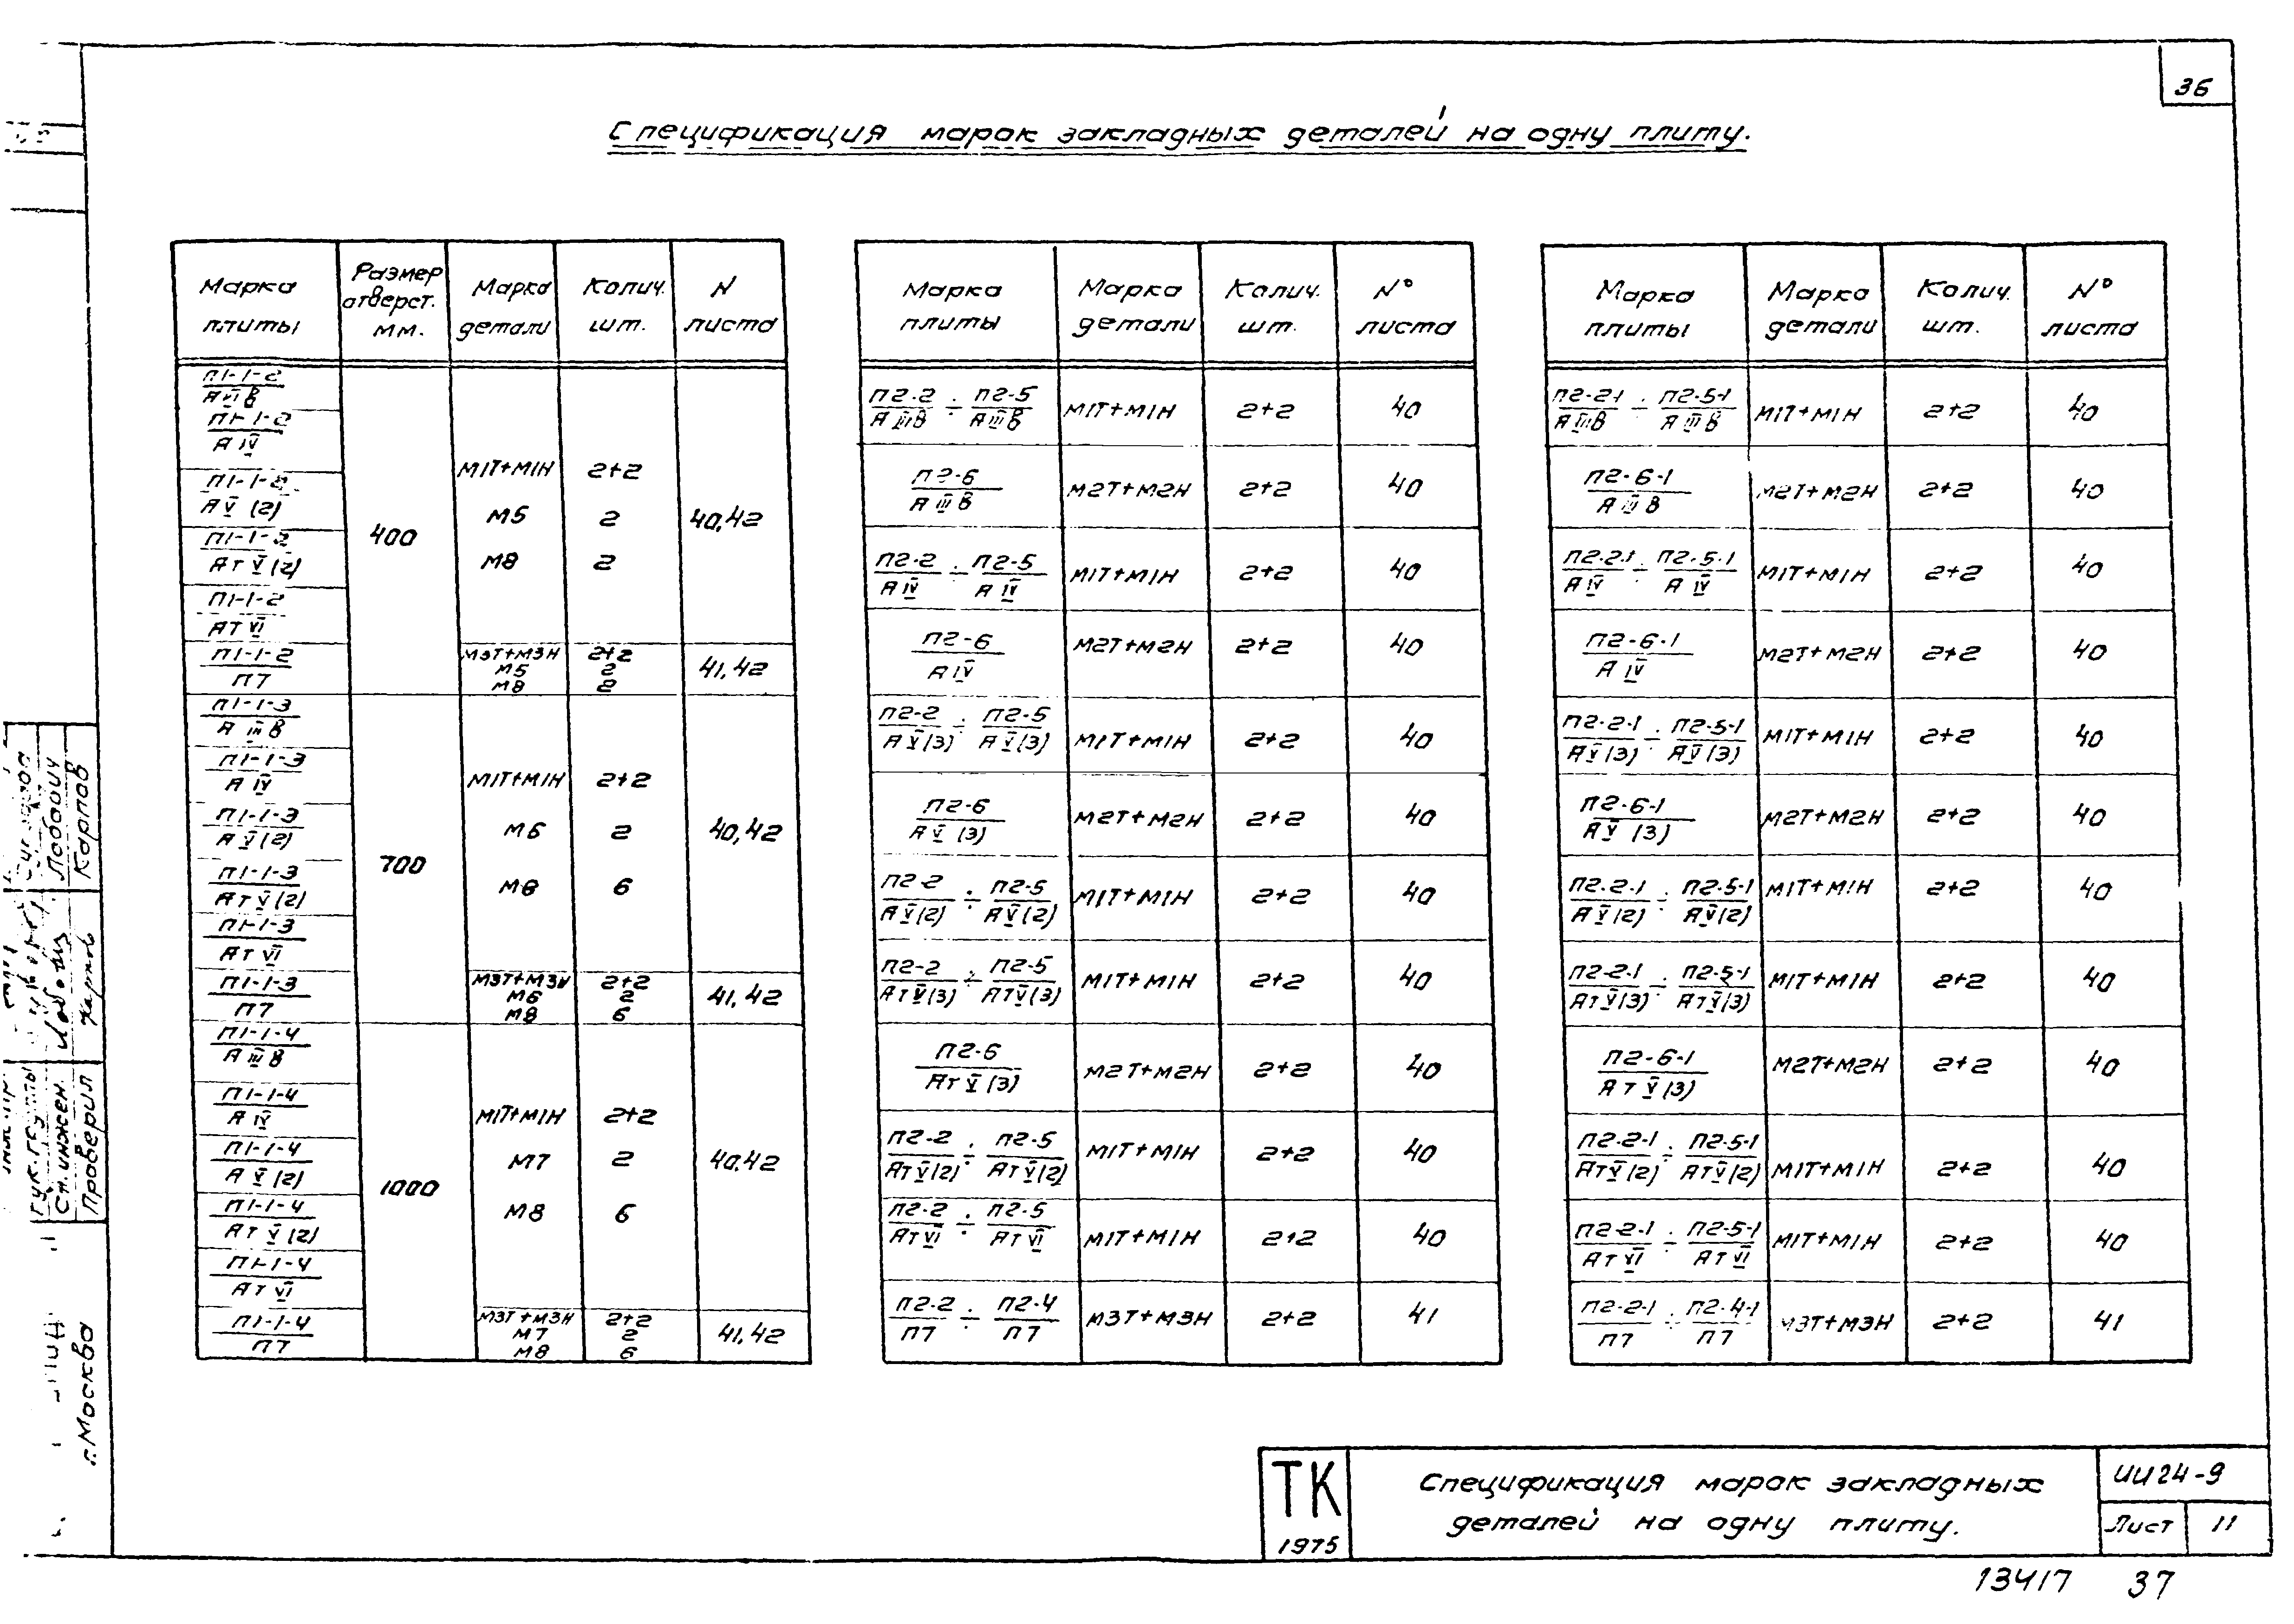 36
Спецификация марок закладных деталей на одну плиту.
Марка плиты | Размер отверст. мм. | Марка детали | Колич. шт. | N листа
П1-1-2 / А III в
П1-1-2 / А IV
П1-1-2 / А V (2)
П1-1-2 / Ат V (2)
П1-1-2 / Ат VI
400
М1Т+М1Н 2+2
М5 2
М8 2
40,42
П1-1-2 / П7
М3Т+М3Н 2+2
М5 2
М8 2
41,42
П1-1-3 / А III в
П1-1-3 / А IV
П1-1-3 / А V (2)
П1-1-3 / Ат V (2)
П1-1-3 / Ат VI
700
М1Т+М1Н 2+2
М6 2
М8 6
40,42
П1-1-3 / П7
М3Т+М3Н 2+2
М6 2
М8 6
41,42
П1-1-4 / А III в
П1-1-4 / А IV
П1-1-4 / А V (2)
П1-1-4 / Ат V (2)
П1-1-4 / Ат VI
1000
М1Т+М1Н 2+2
М7 2
М8 6
40,42
П1-1-4 / П7
М3Т+М3Н 2+2
М7 2
М8 6
41,42
Марка плиты | Марка детали | Колич. шт. | N° листа
П2-2 / А III в ÷ П2-5 / А III в М1Т+М1Н 2+2 40
П2-6 / А III в М2Т+М2Н 2+2 40
П2-2 / А IV ÷ П2-5 / А IV М1Т+М1Н 2+2 40
П2-6 / А IV М2Т+М2Н 2+2 40
П2-2 / А V (3) ÷ П2-5 / А V (3) М1Т+М1Н 2+2 40
П2-6 / А V (3) М2Т+М2Н 2+2 40
П2-2 / А V (2) ÷ П2-5 / А V (2) М1Т+М1Н 2+2 40
П2-2 / Ат V (3) ÷ П2-5 / Ат V (3) М1Т+М1Н 2+2 40
П2-6 / Ат V (3) М2Т+М2Н 2+2 40
П2-2 / Ат V (2) ÷ П2-5 / Ат V (2) М1Т+М1Н 2+2 40
П2-2 / Ат VI ÷ П2-5 / Ат VI М1Т+М1Н 2+2 40
П2-2 / П7 ÷ П2-4 / П7 М3Т+М3Н 2+2 41
Марка плиты | Марка детали | Колич. шт. | N° листа
П2-2-1 / А III в ÷ П2-5-1 / А III в М1Т+М1Н 2+2 40
П2-6-1 / А III в М2Т+М2Н 2+2 40
П2-2-1 / А IV ÷ П2-5-1 / А IV М1Т+М1Н 2+2 40
П2-6-1 / А IV М2Т+М2Н 2+2 40
П2-2-1 / А V (3) ÷ П2-5-1 / А V (3) М1Т+М1Н 2+2 40
П2-6-1 / А V (3) М2Т+М2Н 2+2 40
П2-2-1 / А V (2) ÷ П2-5-1 / А V (2) М1Т+М1Н 2+2 40
П2-2-1 / Ат V (3) ÷ П2-5-1 / Ат V (3) М1Т+М1Н 2+2 40
П2-6-1 / Ат V (3) М2Т+М2Н 2+2 40
П2-2-1 / Ат V (2) ÷ П2-5-1 / Ат V (2) М1Т+М1Н 2+2 40
П2-2-1 / Ат VI ÷ П2-5-1 / Ат VI М1Т+М1Н 2+2 40
П2-2-1 / П7 ÷ П2-4-1 / П7 М3Т+М3Н 2+2 41
Рук. группы
Ст. инжен. Лобович
Проверил Карпов
г. Москва
ТК
1975
Спецификация марок закладных
деталей на одну плиту.
ИИ24-9
Лист 11
13417 37